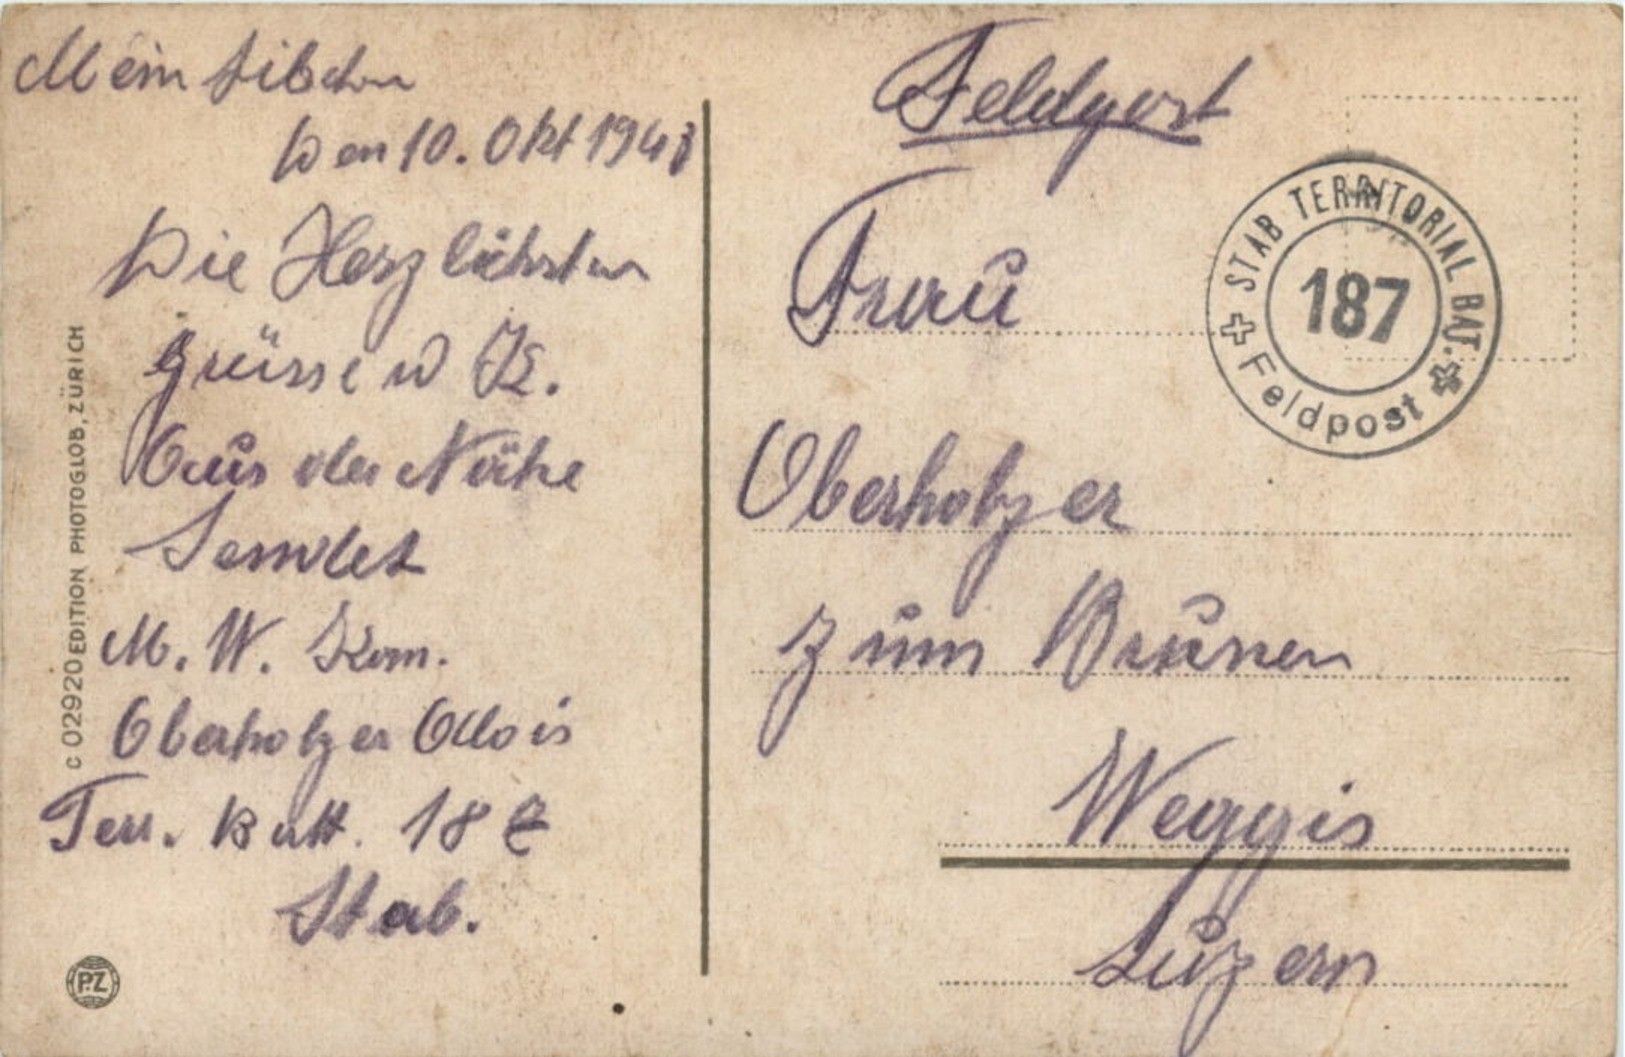 Mein Libchen
Den 10. Okt 1943
Die Herzlichsten
Grüsse u K.
Aus der Nähe
Sendet
M. W. Kom.
Oberholzer Alois
Terr. Batt. 187
Stab.
C 02920 EDITION PHOTOGLOB, ZÜRICH
P.Z
Feldpost
STAB TERRITORIAL BAT.
187
Feldpost
Frau
Oberholzer
zum Brunen
Weggis
Luzern